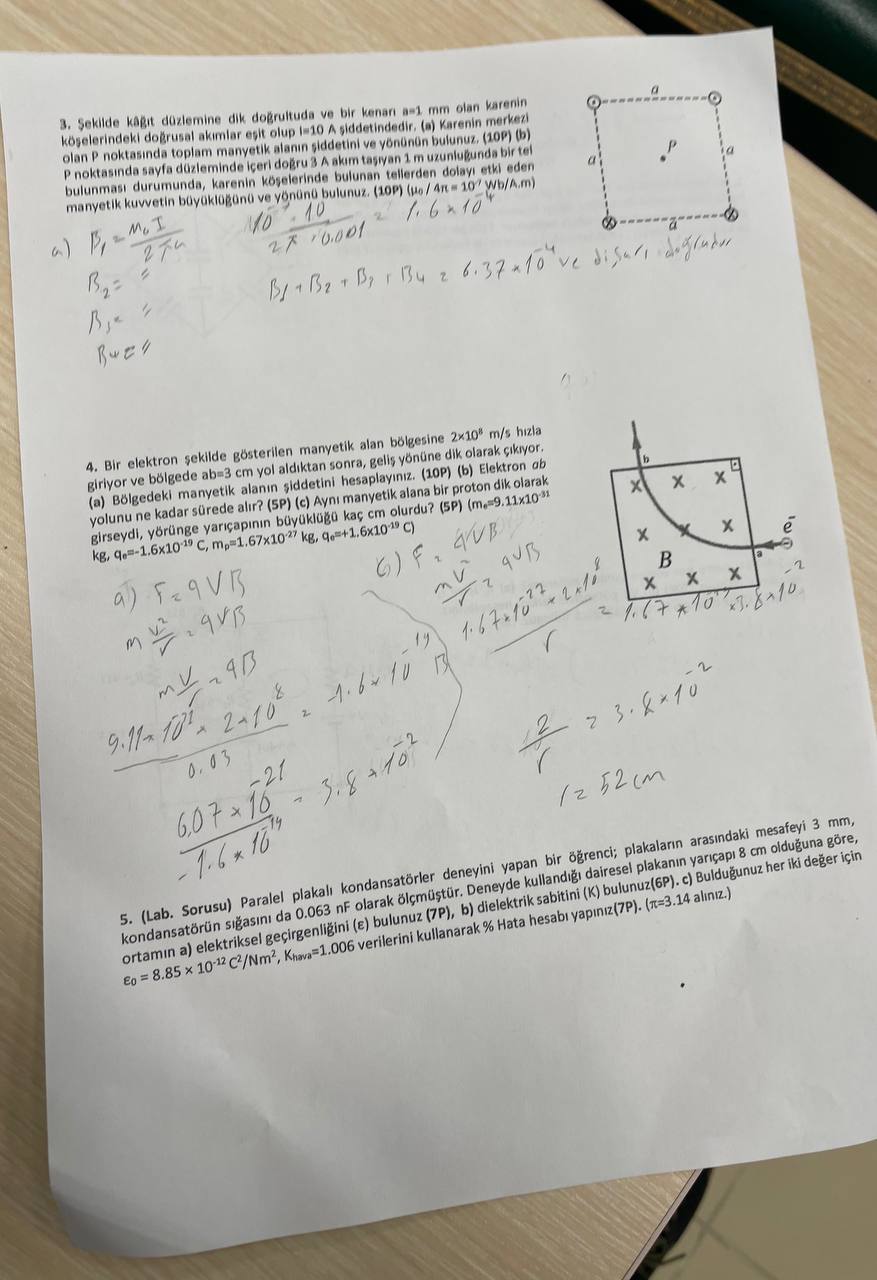 3. Şekilde kâğıt düzlemine dik doğrultuda ve bir kenarı a=1 mm olan karenin
köşelerindeki doğrusal akımlar eşit olup i=10 A şiddetindedir. (a) Karenin merkezi
olan P noktasında toplam manyetik alanın şiddetini ve yönünün bulunuz. (10P) (b)
P noktasında sayfa düzleminde içeri doğru 3 A akım taşıyan 1 m uzunluğunda bir tel
bulunması durumunda, karenin köşelerinde bulunan tellerden dolayı etki eden
manyetik kuvvetin büyüklüğünü ve yönünü bulunuz. (10P) (μ₀ / 4π = 10⁻⁷ Wb/A.m)
a
a
P
a
a
a) B₁ = M₀ I / 2πa
10⁻⁷ · 10 / 2π · 0.001 = 1.6 × 10⁻⁴
B₂ = "
B₃ = "
B₄ = "
B₁ + B₂ + B₃ + B₄ = 6.37 × 10⁻⁴ ve dışarı doğrudur
4. Bir elektron şekilde gösterilen manyetik alan bölgesine 2×10⁸ m/s hızla
giriyor ve bölgede ab=3 cm yol aldıktan sonra, geliş yönüne dik olarak çıkıyor.
(a) Bölgedeki manyetik alanın şiddetini hesaplayınız. (10P) (b) Elektron ab
yolunu ne kadar sürede alır? (5P) (c) Aynı manyetik alana bir proton dik olarak
girseydi, yörünge yarıçapının büyüklüğü kaç cm olurdu? (5P) (mₑ=9.11x10⁻³¹
kg, qₑ=-1.6x10⁻¹⁹ C, mₚ=1.67x10⁻²⁷ kg, qₑ=+1.6x10⁻¹⁹ C)
b
x x x
x x x
B
x x x
a
ē
a) F = qVB
m v²/r = qVB
mV/r = qB
9.11 × 10⁻³¹ × 2 × 10⁸ / 0.03 = -1.6 × 10⁻¹⁹ B
6.07 × 10⁻²¹ / -1.6 × 10⁻¹⁹ = 3.8 × 10⁻²
b) F = qVB
mv²/r = qVB
1.67 × 10⁻²⁷ × 2 × 10⁸ / r = 1.67 × 10 × 3.8 × 10⁻²
2/r = 3.8 × 10⁻²
r = 52 cm
5. (Lab. Sorusu) Paralel plakalı kondansatörler deneyini yapan bir öğrenci; plakaların arasındaki mesafeyi 3 mm,
kondansatörün sığasını da 0.063 nF olarak ölçmüştür. Deneyde kullandığı dairesel plakanın yarıçapı 8 cm olduğuna göre,
ortamın a) elektriksel geçirgenliğini (ε) bulunuz (7P), b) dielektrik sabitini (K) bulunuz(6P). c) Bulduğunuz her iki değer için
ε₀ = 8.85 × 10⁻¹² C²/Nm², Khava=1.006 verilerini kullanarak % Hata hesabı yapınız(7P). (π=3.14 alınız.)